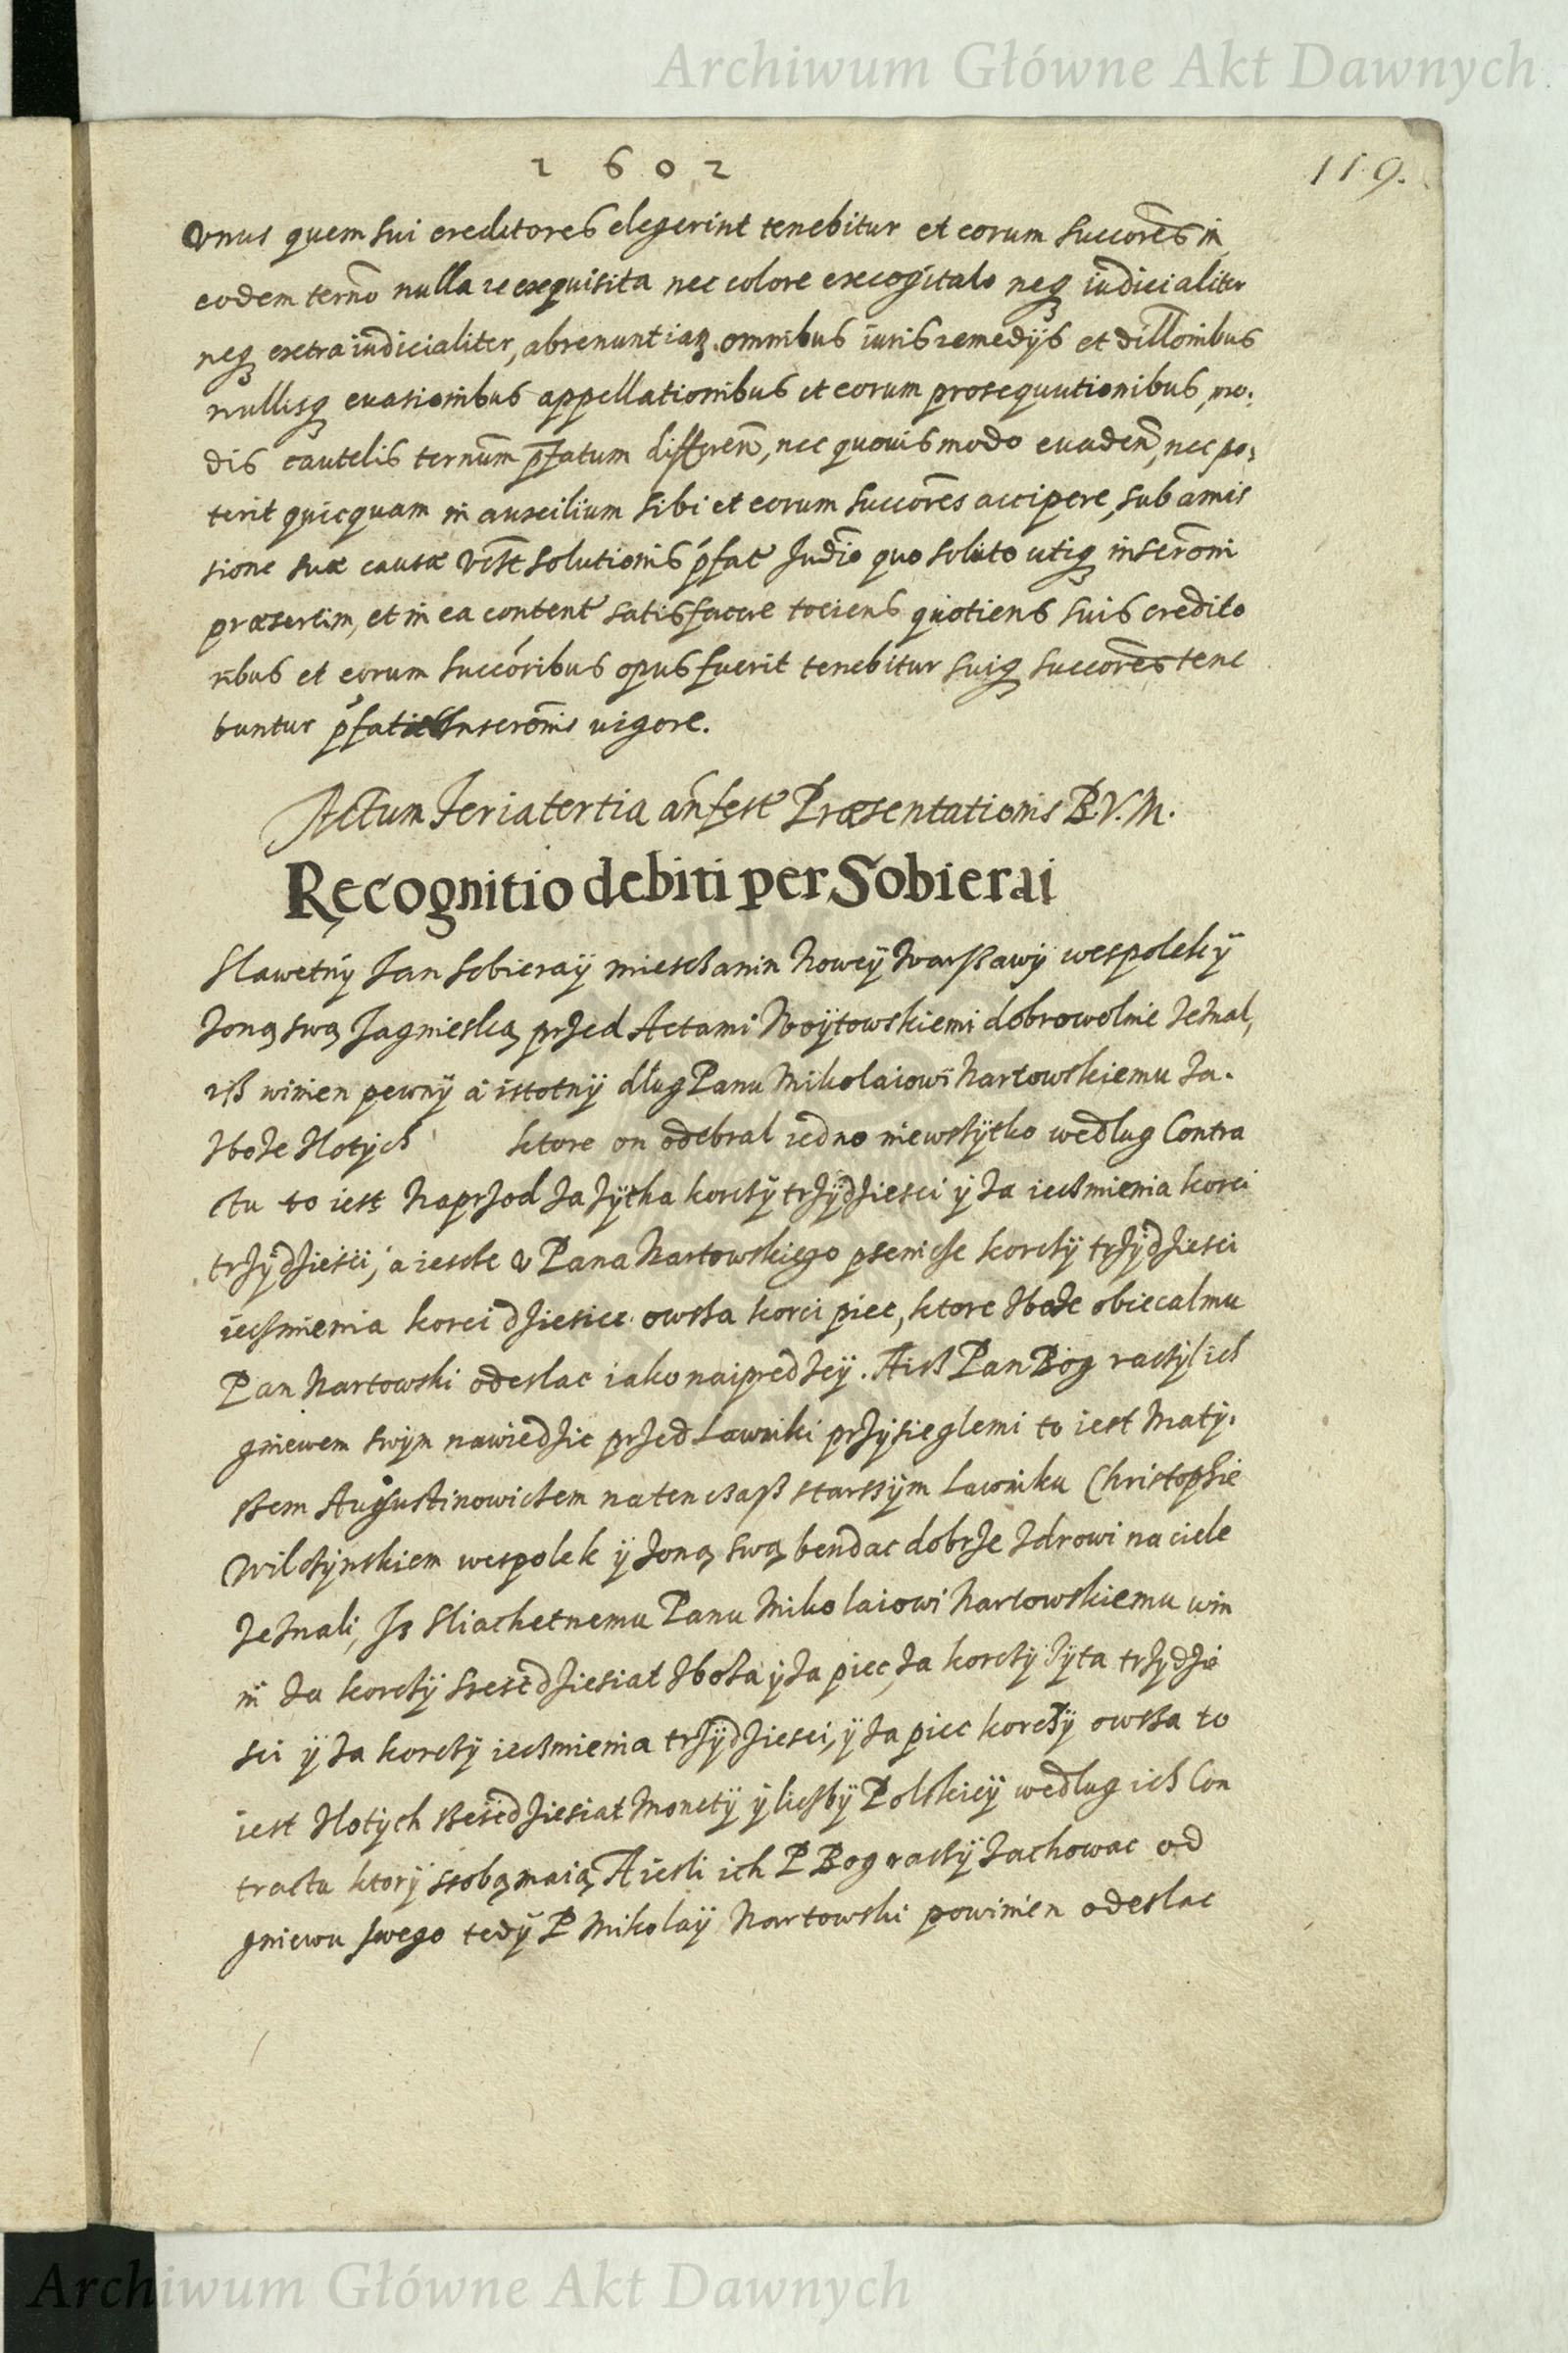 Archiwum Główne Akt Dawnych
1602
119.
Vnus quem sui creditores elegerint tenebitur et eorum succores in
eodem termo nulla re exquisita nec colore excogitato neq iudicialiter
neq extraiudicialiter, abrenuntiaz. omnibus iuris remedijs et dillonibus
nullisq euasionibus appellationibus et eorum prosequutionibus, mo.
dis cautelis ternum pfatum differen, nec quouis modo euaden, nec po:
terit quicquam in auxilium sibi et eorum succores accipere, sub amis
sione suæ causæ solutionis pfat Judio quo soluto utiq inscroni
præsertim, et in ea content satisfacere tociens quotiens suis credito
ribus et eorum succoribus opus fuerit tenebitur suiq succores tene
buntur pfatæ Inscronis uigore.
Actum feria tertia an fest Præsentationis B.V.M.
Recognitio debiti per Sobierai
Slawetny Jan Sobieraÿ miesczanin Noweÿ Warszawÿ wespolekÿ
Zoną swą Jagnieską przed Actami Woÿtowskiemi dobrowolnie zeznal,
isz winien pewnÿ a istotnÿ dług Panu Mikolaiowi Nartowskiemu za.
zboze zlotych ktore on odebral iedno niewszÿtko według Contra
ctu to iest Naprzod za zÿtha korczÿ trzÿdziesci ÿ za ieczmienia korci
trzÿdziesci, a iescze v Pana Nartowskiego psenicze korczÿ trzÿdziesci
ieczmienia korci dziesiec owsza korci piec, ktore zboze obiecal mu
Pan Nartowski odeslac iako naipredzeÿ. A isz Pan Bog raczÿl ich
gniewem swÿm nawiedzic przed Lawniki przÿsieglemi to iest Matÿ.
szem Augustinowiczem natenczasz starszÿm Lawniku Christophie
Wilczÿnskiem wespolek ÿ zoną swą bendac dobrze zdrowi na ciele
zeznali, Js Sliachetnemu Panu Mikolaiowi Nartowskiemu win
ni za korczÿ szescdziesiat zboza ÿ za piec, za korczÿ zyta trzydzie
sci ÿ za korczÿ ieczmienia trzÿdziesci, ÿ za piec korczÿ owsza to
iest zlotych szescdziesiat Monetÿ ÿ liczbÿ Polskieÿ według ich Con
tractu ktorÿ ssobą maią, A iesli ich P Bog raczÿ zachowac od
gniewu swego tedÿ P Mikolaÿ Nartowski powinien odeslac
Archiwum Główne Akt Dawnych